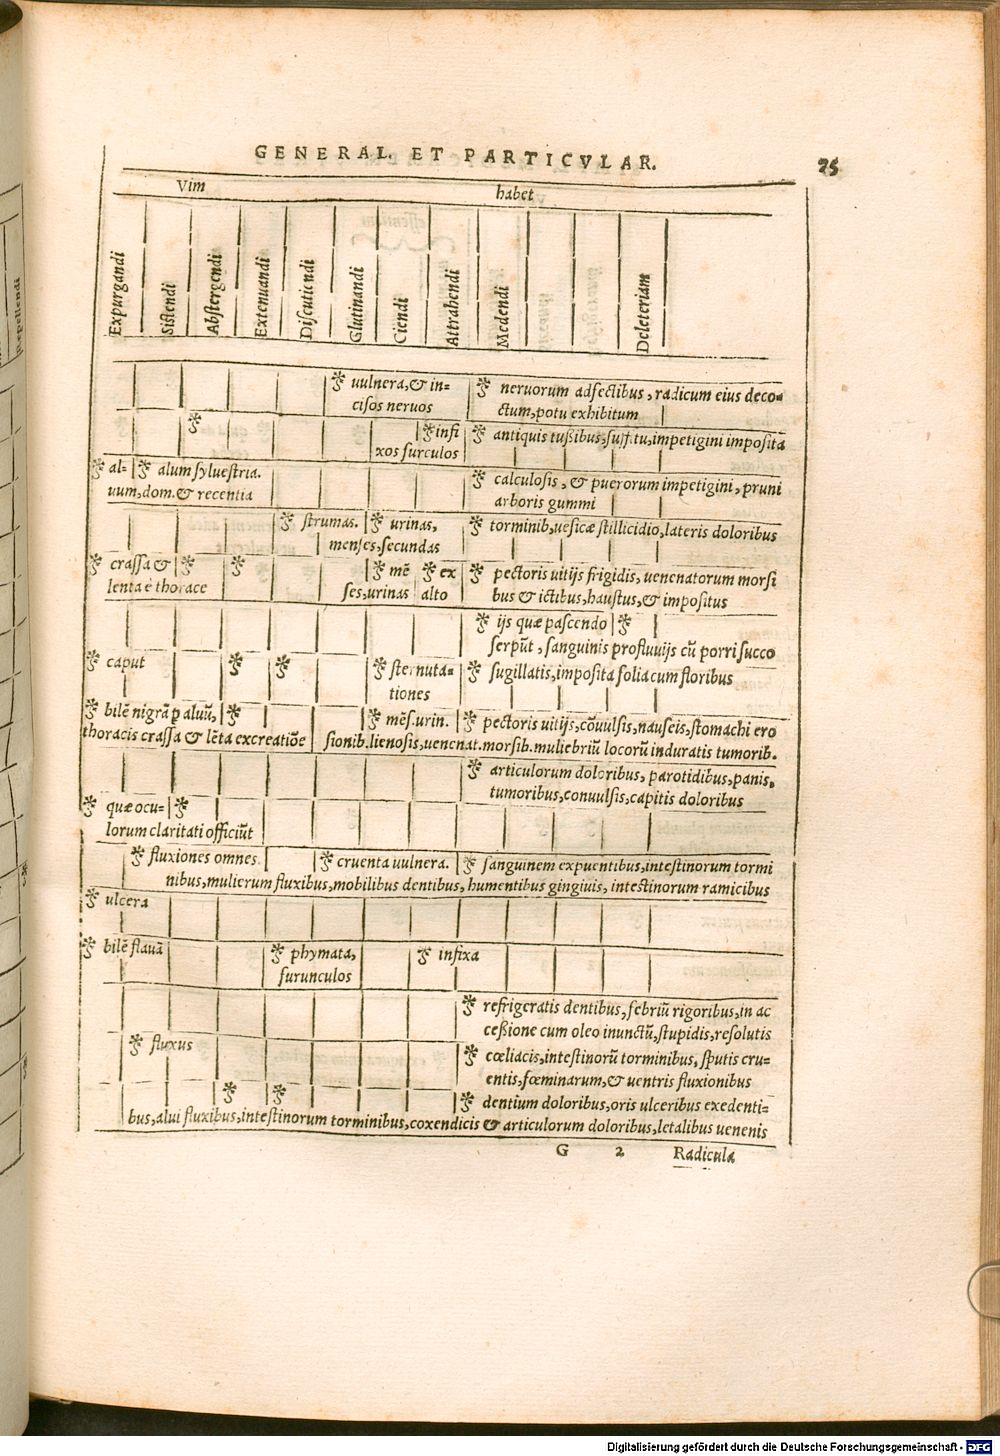 GENERAL. ET PARTICVLAR. 75
Vim habet
Expurgandi
Sistendi
Abstergendi
Extenuandi
Discutiendi
Glutinandi
Ciendi
Attrahendi
Medendi
Deleteriam
Repellendi
uulnera, & in= neruorum adfectibus, radicum eius deco=
cisos neruos ctum, potu exhibitum
infi antiquis tußibus, suffitu, impetigini imposita
xos surculos
al= alum syluestria. calculosis, & puerorum impetigini, pruni
uum, dom. & recentia arboris gummi
strumas. urinas, torminib, uesicæ stillicidio, lateris doloribus
menses, secundas
crassa & mē ex pectoris uitijs frigidis, uenenatorum morsi
lenta è thorace ses, urinas alto bus & ictibus, haustus, & impositus
ijs quæ pascendo
serpūt, sanguinis profluuijs cū porri succo
caput sternuta= sugillatis, imposita folia cum floribus
tiones
bilē nigrā ꝑ aluū, mēs. urin. pectoris uitijs, cōuulsis, nauseis, stomachi ero
thoracis crassa & lēta excreatiōe sionib. lienosis, uenenat. morsib. muliebriū locorū induratis tumorib.
articulorum doloribus, parotidibus, panis,
tumoribus, conuulsis, capitis doloribus
quæ ocu=
lorum claritati officiūt
fluxiones omnes. cruenta uulnera. sanguinem expuentibus, intestinorum tormi
nibus, mulierum fluxibus, mobilibus dentibus, humentibus gingiuis, intestinorum ramicibus
ulcera
bilē flauā phymata, infixa
furunculos
refrigeratis dentibus, febriū rigoribus, in ac
ceßione cum oleo inunctū, stupidis, resolutis
fluxus cœliacis, intestinorū torminibus, sputis cru=
entis, fœminarum, & uentris fluxionibus
dentium doloribus, oris ulceribus exedenti=
bus, alui fluxibus, intestinorum torminibus, coxendicis & articulorum doloribus, letalibus uenenis
G 2 Radicula
Digitalisierung gefördert durch die Deutsche Forschungsgemeinschaft - DFG